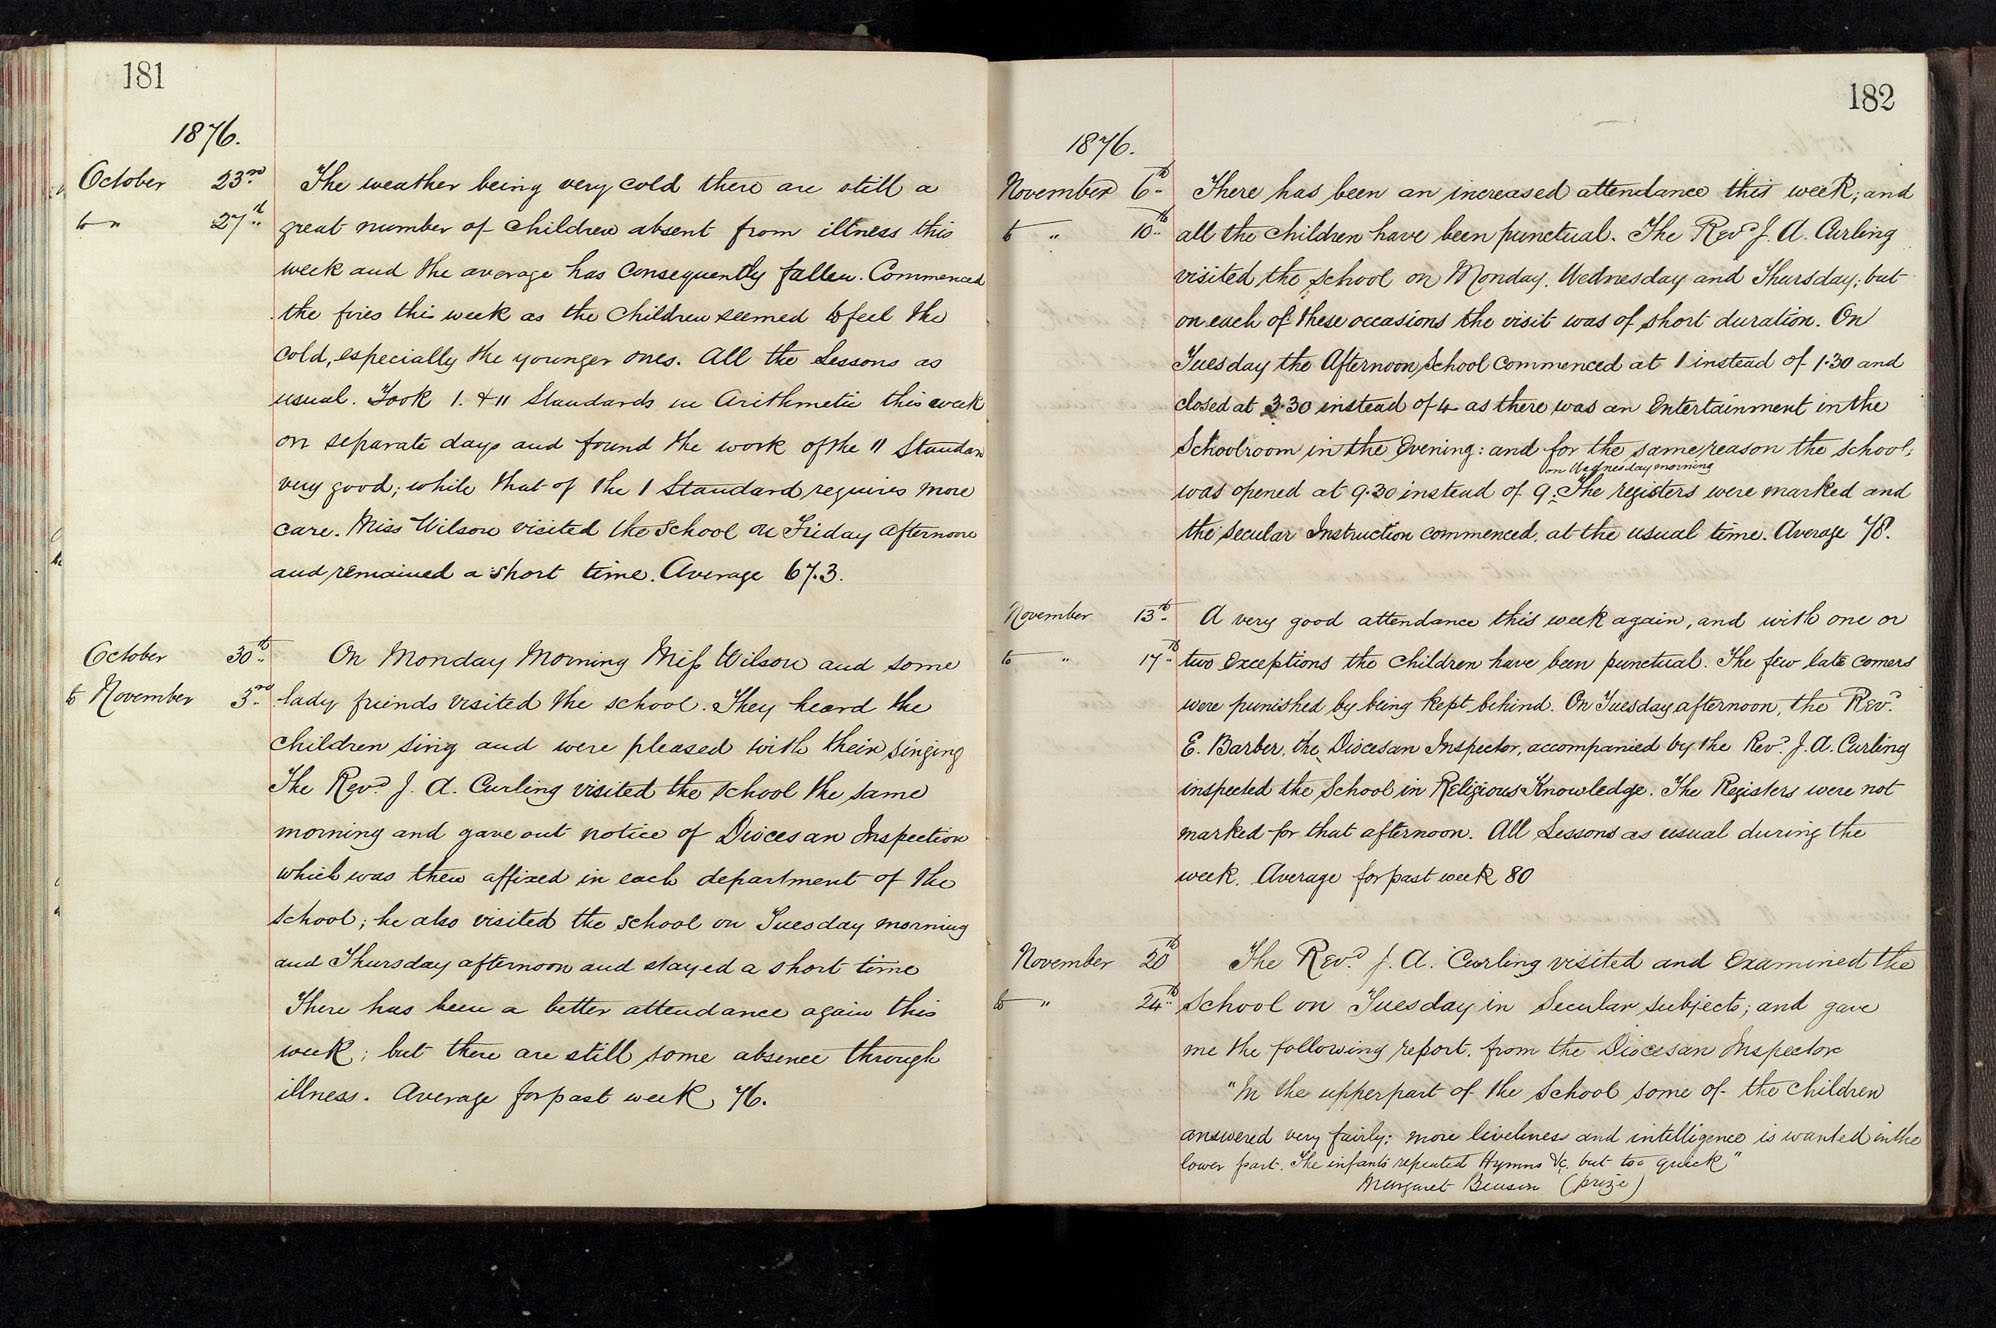 181
1876.
October 23rd The weather being very cold there are still a
to " 27th great number of children absent from illness this
week and the average has consequently fallen. Commenced
the fires this week as the children seemed to feel the
cold, especially the younger ones. All the Lessons as
usual. Took 1. & 11 Standards in Arithmetic this week
on separate days and found the work of the 11 Standard
very good; while that of the 1 Standard requires more
care. Miss Wilson visited the School on Friday afternoon
and remained a short time. Average 67.3.
October 30th On Monday Morning Miss Wilson and some
to November 3rd lady friends visited the school. They heard the
children sing and were pleased with their singing
The Revd J. A. Curling visited the school the same
morning and gave out notice of Diocesan Inspection
which was then affixed in each department of the
school; he also visited the school on Tuesday morning
and Thursday afternoon and stayed a short time
There has been a better attendance again this
week; but there are still some absence through
illness. Average for past week 76.
182
1876.
November 6th There has been an increased attendance this week; and
to " 10th all the children have been punctual. The Revd J. A. Curling
visited the school on Monday, Wednesday and Thursday; but
on each of these occasions the visit was of short duration. On
Tuesday the Afternoon School commenced at 1 instead of 1.30 and
closed at 3.30 instead of 4 as there was an Entertainment in the
Schoolroom in the Evening: and for the same reason the school,
on Wednesday morning
was opened at 9.30 instead of 9. The registers were marked and
the secular Instruction commenced, at the usual time. Average 78.
November 13th A very good attendance this week again, and with one or
to " 17th two exceptions the children have been punctual. The few late comers
were punished by being kept behind. On Tuesday afternoon, the Revd
E. Barber, the Diocesan Inspector, accompanied by the Revd. J. A. Curling
inspected the School in Religious Knowledge. The Registers were not
marked for that afternoon. All Lessons as usual during the
week. Average for past week 80
November 20th The Revd. J. A. Curling visited and Examined the
to " 24th School on Tuesday in Secular subjects; and gave
me the following report. from the Diocesan Inspector
"In the upper part of the School some of the children
answered very fairly; more liveliness and intelligence is wanted in the
lower part. The infants repeated Hymns &c. but too quick"
Margaret Benson (prize)